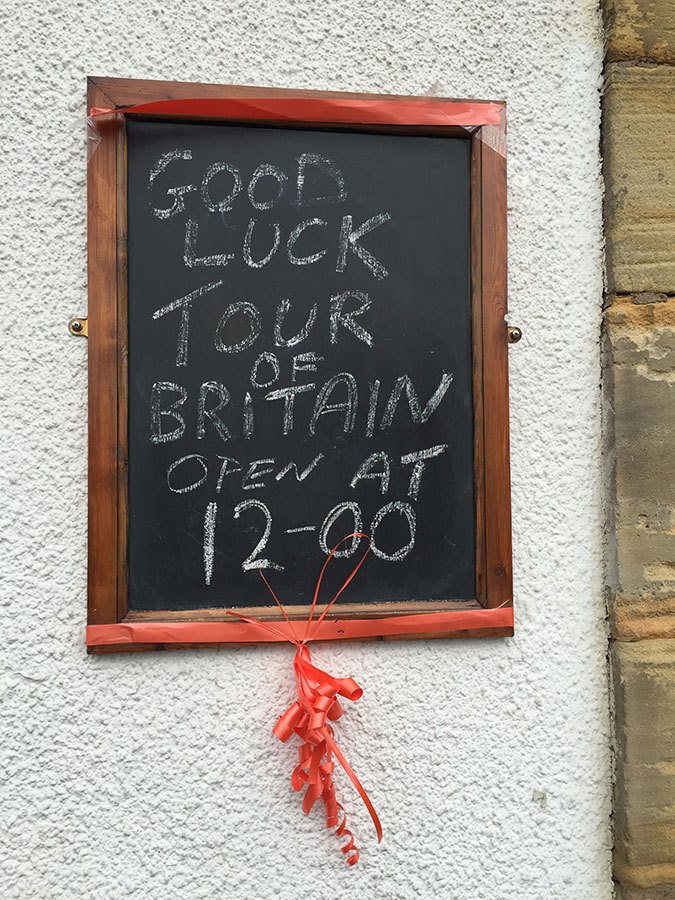 GOOD
LUCK
TOUR
OF
BRITAIN
OPEN AT
12-00